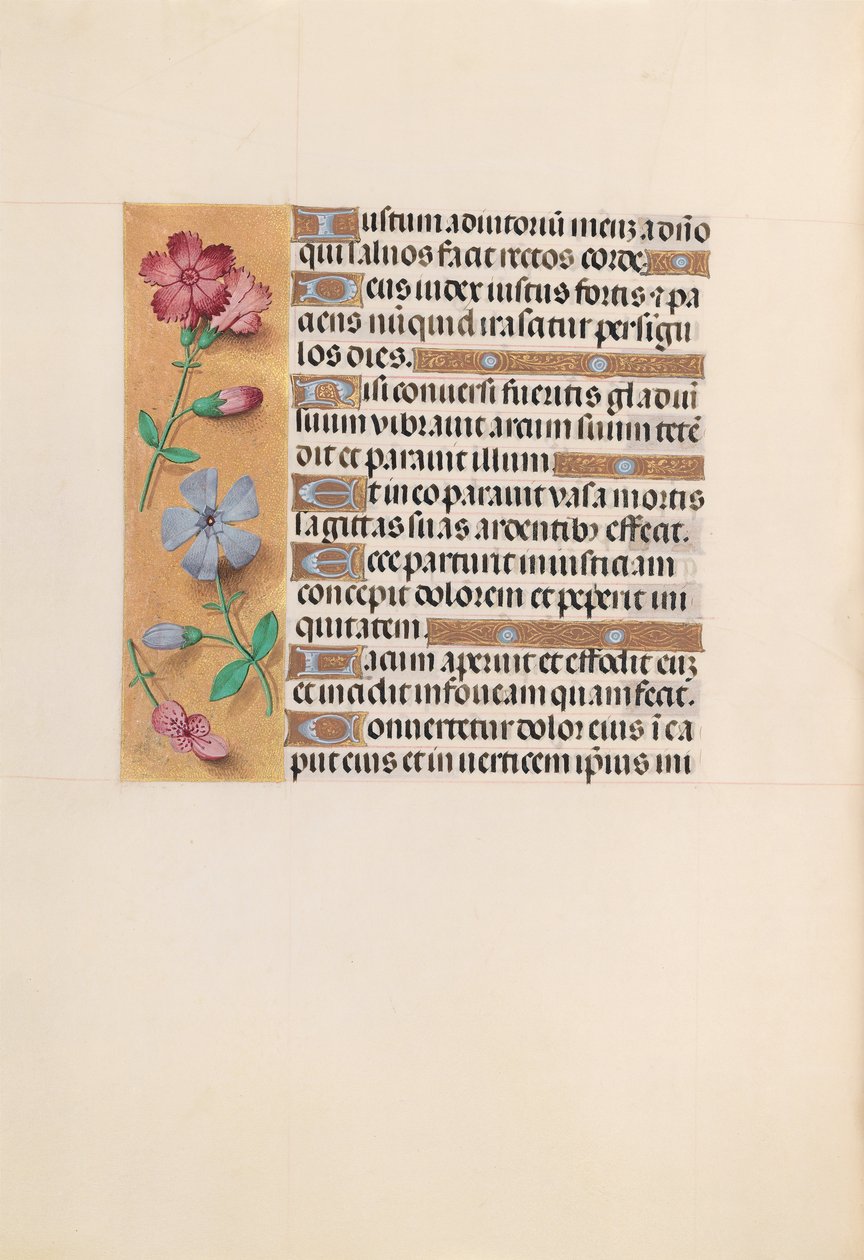 Iustum adiutoriū meuȝ a dn̄o
qui saluos facit rectos corde.
Deus iudex iustus fortis ⁊ pa
ciens nūquid irascitur per sigu
los dies.
Nisi conuersi fueritis gladiū
suum vibrauit arcum suum tetē
dit et parauit illum.
Et in eo parauit vasa mortis
sagittas suas ardentibꝰ effecit.
Ecce parturit iniusticiam
concepit dolorem et peperit ini
quitatem.
Lacum aperuit et effodit euȝ
et incidit in foueam quam fecit.
Conuertetur dolor eius ī ca
put eius et in uerticem ip̄ius ini